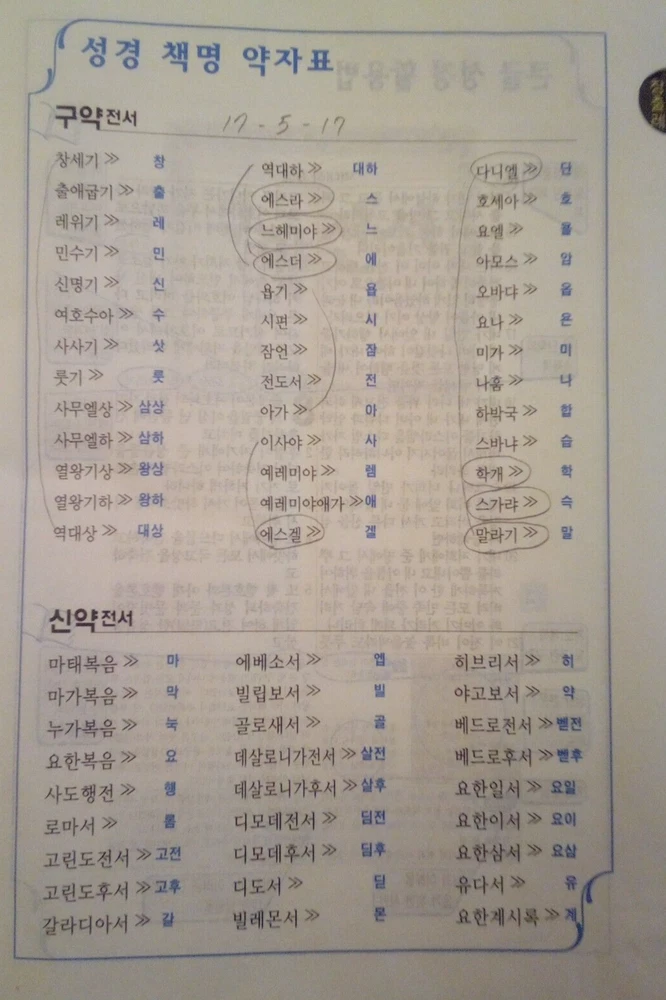 성경 책명 약자표
구약전서
17-5-17
창세기 >> 창
출애굽기 >> 출
레위기 >> 레
민수기 >> 민
신명기 >> 신
여호수아 >> 수
사사기 >> 삿
룻기 >> 룻
사무엘상 >> 삼상
사무엘하 >> 삼하
열왕기상 >> 왕상
열왕기하 >> 왕하
역대상 >> 대상
역대하 >> 대하
에스라 >> 스
느헤미야 >> 느
에스더 >> 에
욥기 >> 욥
시편 >> 시
잠언 >> 잠
전도서 >> 전
아가 >> 아
이사야 >> 사
예레미야 >> 렘
예레미야애가 >> 애
에스겔 >> 겔
다니엘 >> 단
호세아 >> 호
요엘 >> 욜
아모스 >> 암
오바댜 >> 옵
요나 >> 욘
미가 >> 미
나훔 >> 나
하박국 >> 합
스바냐 >> 습
학개 >> 학
스가랴 >> 슥
말라기 >> 말
신약전서
마태복음 >> 마
마가복음 >> 막
누가복음 >> 눅
요한복음 >> 요
사도행전 >> 행
로마서 >> 롬
고린도전서 >> 고전
고린도후서 >> 고후
갈라디아서 >> 갈
에베소서 >> 엡
빌립보서 >> 빌
골로새서 >> 골
데살로니가전서 >> 살전
데살로니가후서 >> 살후
디모데전서 >> 딤전
디모데후서 >> 딤후
디도서 >> 딛
빌레몬서 >> 몬
히브리서 >> 히
야고보서 >> 약
베드로전서 >> 벧전
베드로후서 >> 벧후
요한일서 >> 요일
요한이서 >> 요이
요한삼서 >> 요삼
유다서 >> 유
요한계시록 >> 계